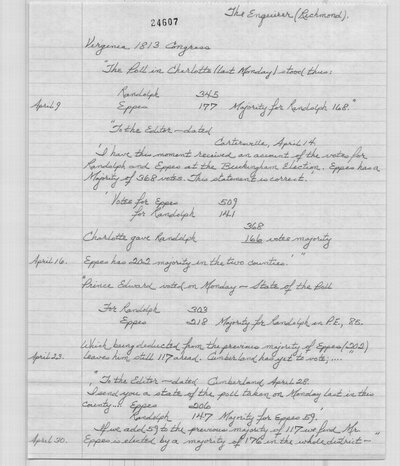 The Enquirer (Richmond).
24607
Virginia 1813 Congress
"The Poll in Charlotte (last Monday) stood thus:
Randolph 345
April 9 Eppes 177 Majority for Randolph 168."
"To the Editor—dated
Cartersville, April 14.
'I have this moment received an account of the votes for
Randolph and Eppes at the Buckingham Election. Eppes has a
Majority of 368 votes. This statement is correct.
'Votes for Eppes 509
for Randolph 141
368
Charlotte gave Randolph 166 votes majority
April 16. Eppes has 202 majority in the two counties.' "
"Prince Edward voted on Monday — State of the Poll
For Randolph 303
Eppes 218 Majority for Randolph in P.E., 85.
Which being deducted from the previous majority of Eppes (202)
April 23. leaves him still 117 ahead. Cumberland has yet to vote; .... "
"To the Editor—dated Cumberland April 28
'I send you a state of the poll taken on Monday last in this
county: Eppes 206
Randolph 147 Majority for Eppes 59.'
If we add 59 to the previous majority of 117 we find Mr.
April 30. Eppes is elected by a majority of 176 in the whole district— "